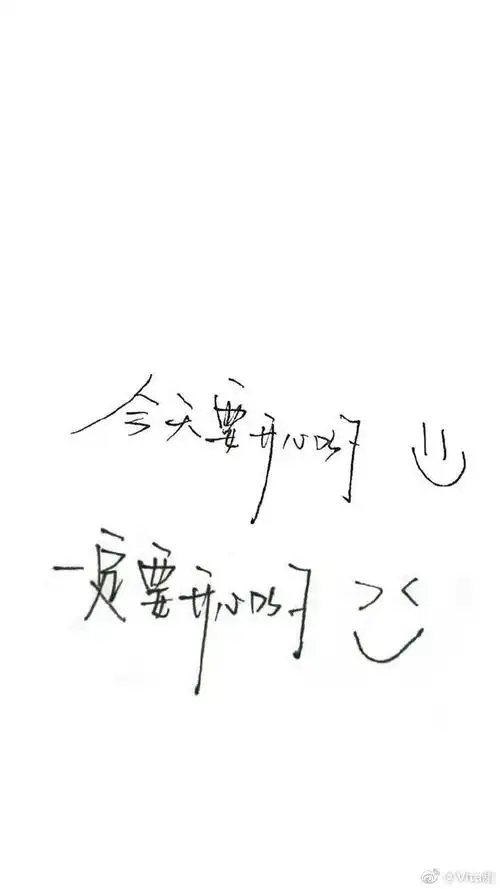 今天要开心呀
一定要开心呀
@Vita那